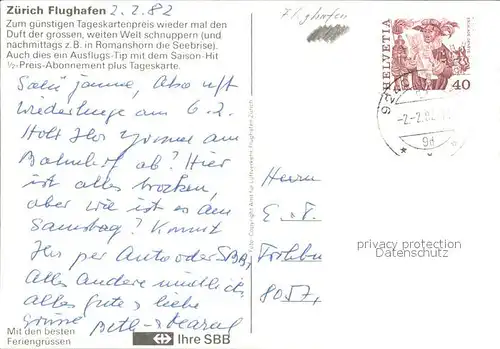 Zürich Flughafen 2.2.82
Zum günstigen Tageskartenpreis wieder mal den
Duft der grossen, weiten Welt schnuppern (und
nachmittags z.B. in Romanshorn die Seebrise).
Auch dies ein Ausflugs-Tip mit dem Saison-Hit
½-Preis-Abonnement plus Tageskarte.
Also
am 6.2.
Holt Ihr Yvonne am
Bahnhof ab? Hier
ist alles trocken,
aber wie ist es am
Samstag? Kommt
Ihr per Auto oder SBB,
alles andere mündlich,
alles gute + liebe
Grüsse Beth + Marcel
Mit den besten
Feriengrüssen
Ihre SBB
Flughafen
HELVETIA
40
-2.-2.82
9d
Herrn
E. + F.
8057,
privacy protection
Datenschutz